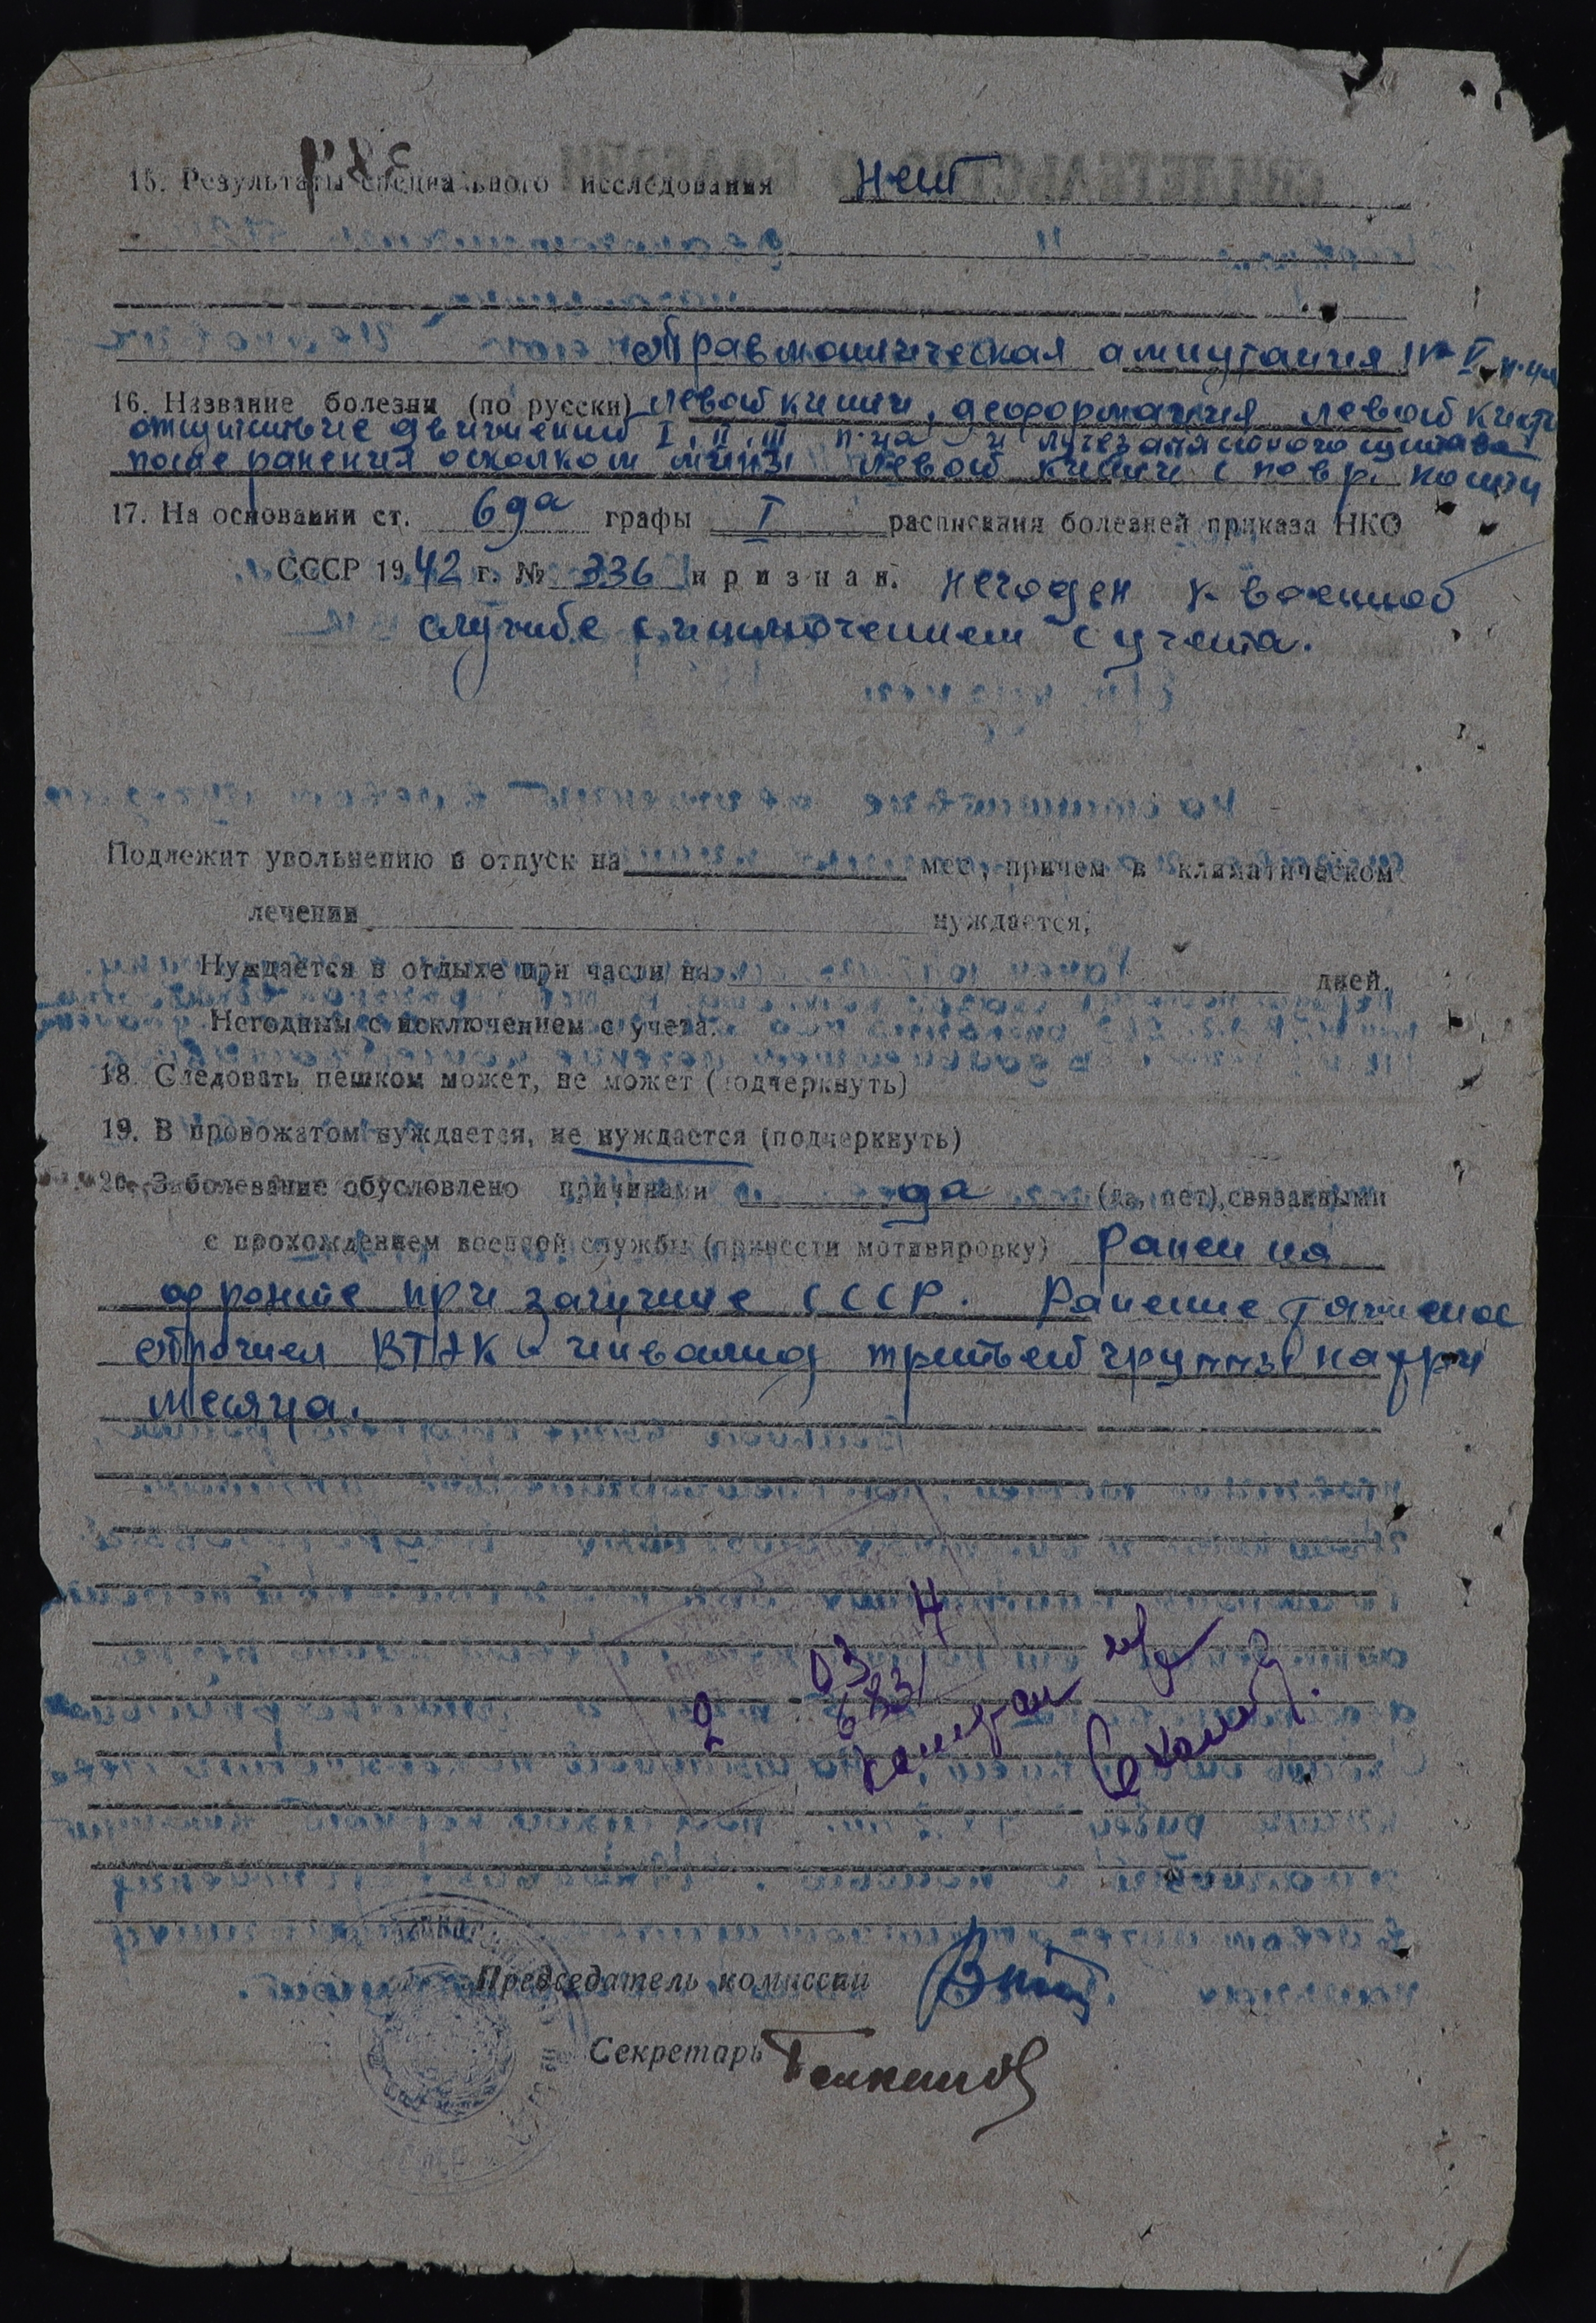 15. Результаты специального исследования нет
Травматическая ампутация IV-V п-ца
16. Название болезни (по русски) левой кисти, деформация левой кисти
отсутствие движений I, II, III п-ца и лучезапястного сустава
после ранения осколком мины левой кисти с повр. кости
17. На основании ст. 69а графы I расписания болезней приказа НКО
СССР 1942 г. № 336 признан. негоден к военной
службе с исключением с учета.
Подлежит увольнению в отпуск на мес, причем в климатическом
лечении нуждается,
Нуждается в отдыхе при части на дней.
Негодным с исключением с учета.
18. Следовать пешком может, не может (подчеркнуть)
19. В провожатом нуждается, не нуждается (подчеркнуть)
20. Заболевание обусловлено причинами да (да, нет), связанными
с прохождением военной службы (привести мотивировку) Ранен на
фронте при защите СССР. Ранение тяжелое
ВТЭК инвалид третьей группы на три
месяца.
Председатель комиссии
Секретарь